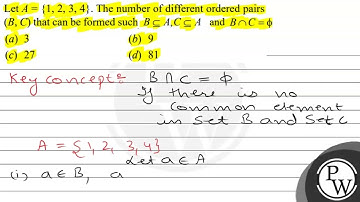 Let A = {1, 2, 3, 4}. The number of different ordered pairs
(B, C) that can be formed such B ⊆ A, C ⊆ A and B ∩ C = ϕ
(a) 3 (b) 9
(c) 27 (d) 81
Key concept:- B ∩ C = ϕ
If there is no
common element
in set B and Set C
A = {1, 2, 3, 4}
Let a ∈ A
(i) a ∈ B, a
PW